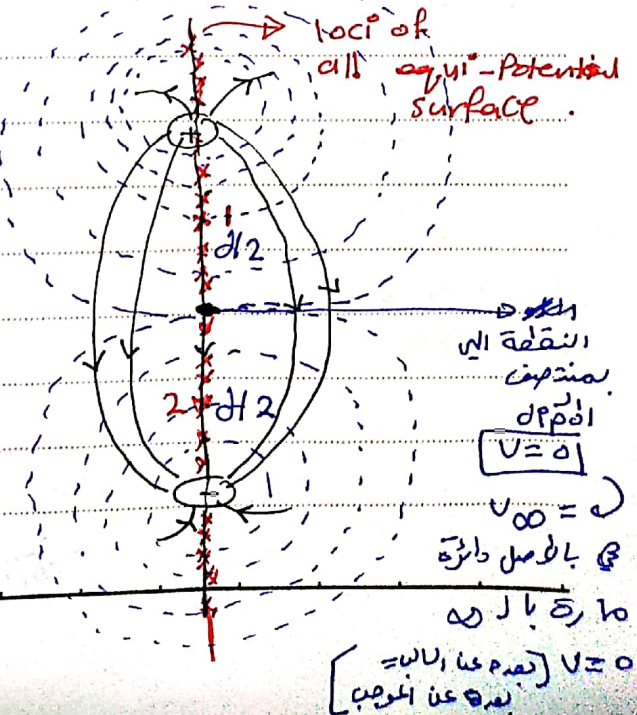 loci of
all equi-Potential
surface.
+
1
d/2
النقطة الي
بمنتصف
ال
V=0
2
d/2
-
V∞ =
هي بالأصل دائرة
مارة بال ∞
V=0 [بعدم عن السالب=
بعده عن الموجب]